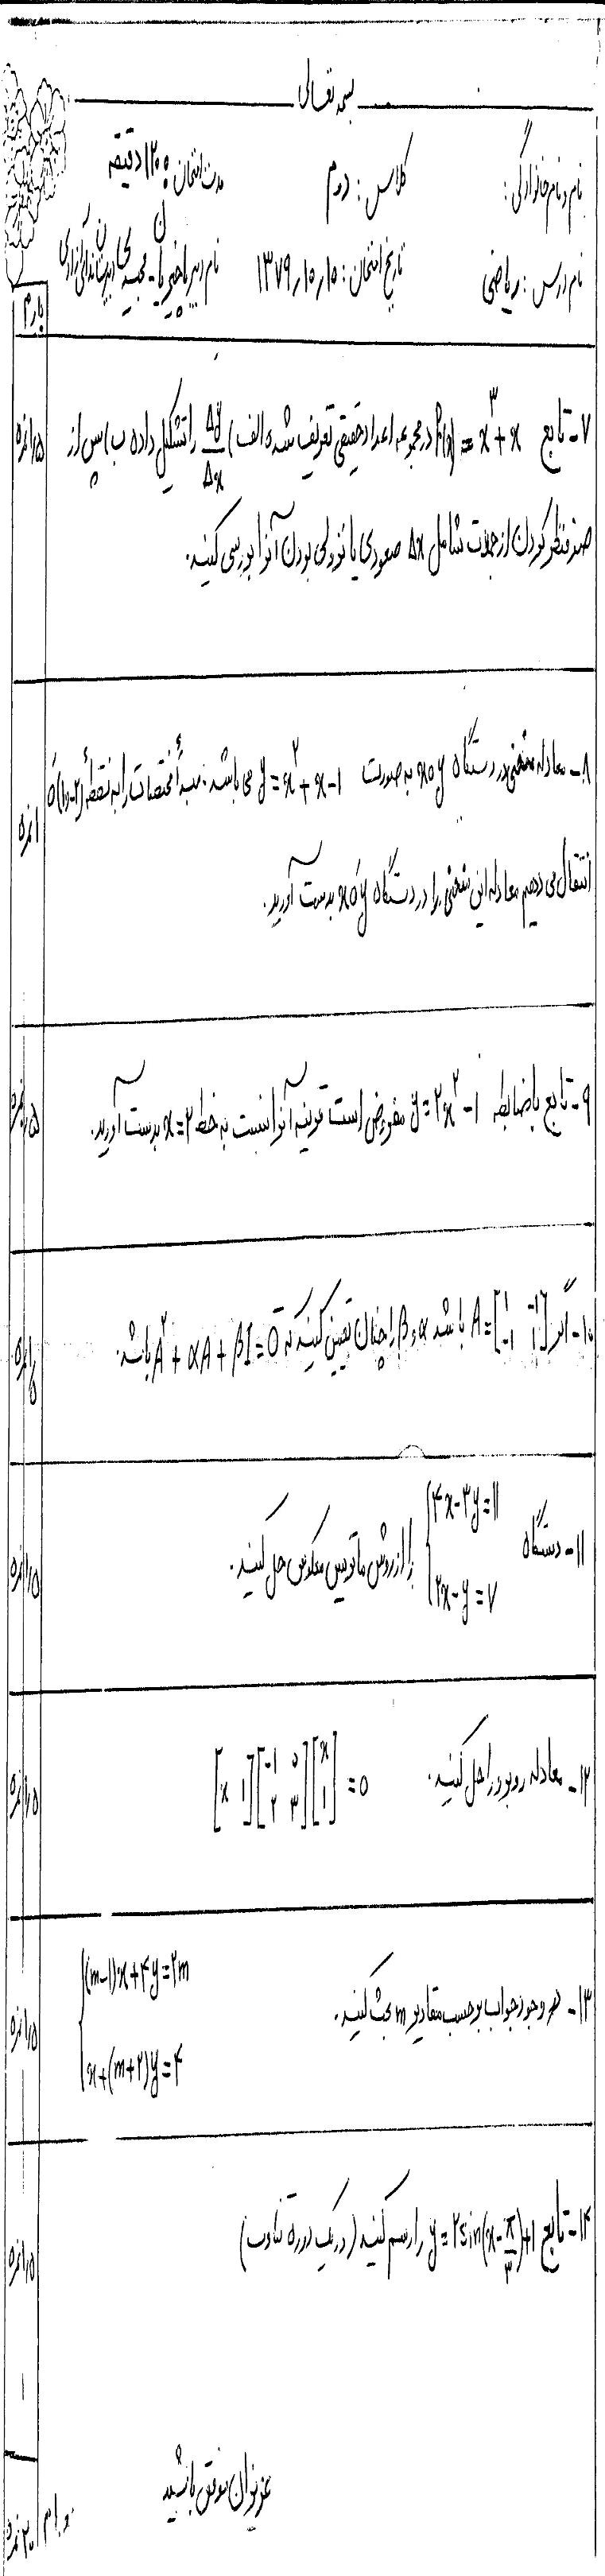 بسمه تعالی
نام و نام خانوادگی : کلاس : دوم مدت امتحان ۱۲۰ دقیقه
نام درس : ریاضی تاریخ امتحان : ۱۳۷۹٫۱۰٫۱۵ نام دبیر
بارم
۷- تابع f(x) = x³ + x در مجموعه اعداد حقیقی تعریف شده الف) Δy/Δx را تشکیل داده ب) پس از ۱٫۵ نمره
صرفنظر کردن از جملات شامل Δx صعودی یا نزولی بودن آنرا بررسی کنید.
۸- معادله منحنی در دستگاه xoy به صورت y = x² + x - ۱ می باشد. مبدأ مختصات را به نقطهٔ o'(۱و-۲) ۱ نمره
انتقال می دهیم معادله این منحنی را در دستگاه x'o'y' بدست آورید.
۹- تابع با ضابطه y = ۲x² - ۱ مفروض است قرینه آنرا نسبت به خط x = ۲ بدست آورید.
۱۰- اگر A = [۱ -۱ -۱ ۱] باشد α و β را چنان تعیین کنید که A² + αA + βI = ō باشد.
۱۱- دستگاه {۴x - ۳y = ۱۱ ۱٫۵ نمره
۲x - y = ۷ را از روش ماتریس معکوس حل کنید.
۱۲- معادله روبرو را حل کنید. [x ۱][-۱ ۰ ۲ ۳][x ۱] = ۰ ۱٫۵ نمره
۱۳- در وجود جواب بر حسب مقادیر m بحث کنید. {(m-۱)x + ۴y = ۲m ۱٫۵ نمره
x + (m+۲)y = ۴
۱۴- تابع y = ۲sin(x - π/۳) + ۱ را رسم کنید (در یک دوره تناوب) ۱٫۵ نمره
عزیزان موفق باشید
۲۰ نمره